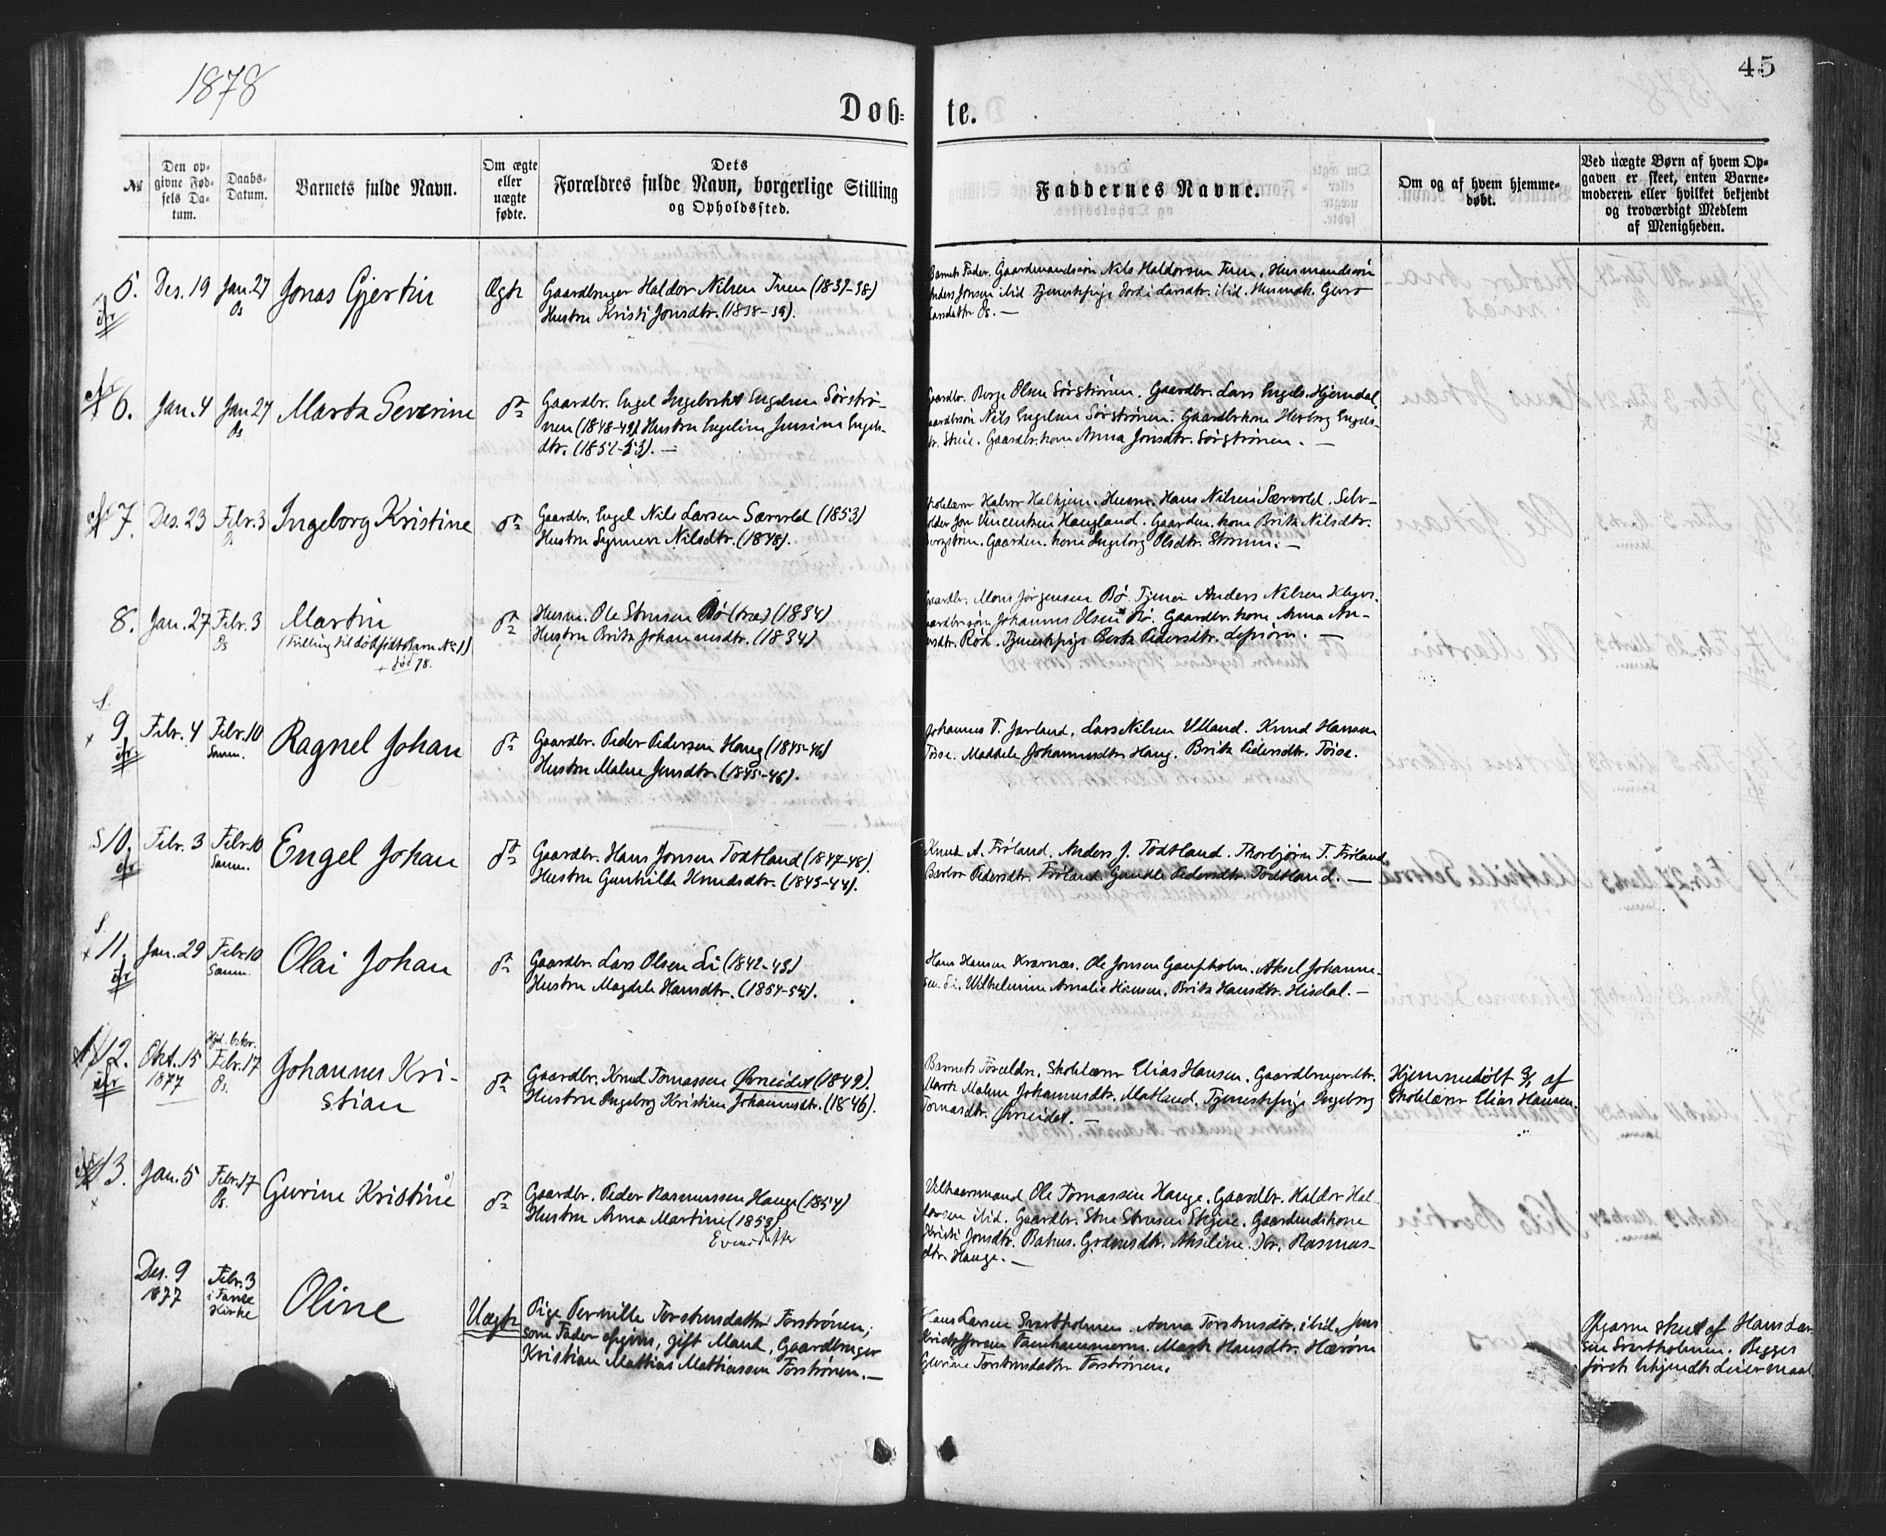 1878
45
Døb-
te.
№
Den op-
givne Fød-
sels Da-
tum.
Daabs-
Datum.
Barnets fulde Navn.
Om ægte
eller
uægte
fødte.
Dets
Forældres fulde Navn, borgerlige Stilling
og Opholdssted.
Faddernes Navne.
Om og af hvem hjemme-
døbt.
Ved uægte Børn af hvem Op-
gaven er skeet, enten Barne-
moderen eller hvilket bekjendt
og troværdigt Medlem
af Menigheden.
5. Des. 19 Jan. 27 Os Jonas Gjertin Ægte
Gaardbruger Haldor Nilsen Tuen (1837-38)
Hustru Kristi Jonsdtr. (1838-39).
Barnets Fader. Gaardmandssøn Nils Haldorsen Tuen, Husmandssøn
Anders Jonsen ibid. Tjenestepige Larsdtr. ibid. Husmdk. Guro
Larsdatter Os. —
6. Jan. 4 Jan 27 Os Marta Severine do
Gaardbr. Engel Ingebrikt Engelsen Sørstrø-
nen (1848-49) Hustru Engeline Jensine Engels-
dtr. (1852-53). —
Gaardbr. Børge Olsen Sørstrønen. Gaardbr. Lars Engels. Hjørndal,
Gaardbrsøn Nils Engelsen Sørstrønen. Gaardbrkone Herborg Engels-
dtr. Gaardbr. kone Anna Jonsdtr. Sørstrønen. —
7. Des. 23 Febr. 3 Os Ingeborg Kristine do
Gaardbr. Engel Nils Larsen Særvold (1853)
Hustru Synneve Nilsdtr. (1848).
Skolelærer Halvor Halhjem. Husm. Hans Nilsen Særvold. Selv-
Jon Vincentsen Haugland. Gaardm. kone Brita Nilsdtr.
Gaardm. kone Ingeborg Olsdtr. Strønen. —
8. Jan. 27 Febr. 3 Os Martin do
(Tvilling til dødfødt Barn No 1)
+ død 78.
Husm. Ole Stensen Bø (træ) (1834)
Hustru Brita Johannesdtr. (1834)
Gaardbr. Mons Jørgensen Bø. Tjener Anders Nilsen
Gaardbrsøn Johannes Olsen Bø. Gaardbr. kone Anna An-
dersdtr. Rød. Tjenestepige Berta Pedersdtr. Lepsøen. —
9. Febr. 4 Febr. 10 Samn. Ragnel Johan do
Gaardbr. Peder Pedersen Haug (1845-46)
Hustru Malene Jensdtr. (1845-46).
Johannes T. Jarland, Lars Nilsen Ulland. Knud Hansen
Tøsse. Johannesdtr. Haug. Brita Pedersdtr. Tøsse.
10. Febr. 3 Febr. 10 Samn. Engel Johan do
Gaardbr. Hans Jonsen Todtland (1847-48).
Hustru Gunhilde Knudsdtr. (1843-44).
Knud A. Frøland. Anders J. Todtland. Thorbjørn T. Frøland
Barbro Pedersdtr. Frøland Gundle Pedersdtr. Todtland. —
11. Jan. 29 Febr. 10 Samn. Olai Johan do
Gaardbr. Lars Olsen Li (1842-43)
Hustru Magdela Hansdtr. (1854-55).
Hans Hansen Kvarnæs. Ole Jonsen Gaupholm. Aksel Johanne-
sen Li. Wilhelmine Amalie Hansen, Brita Hansdtr. Hisdal. —
12. Okt. 15 1877 Febr. 17 Os. Johannes Kri-
stian do
Gaardbr. Knud Tomassen Øvreidet (1849).
Hustru Ingeborg Kristine Johannesdtr. (1846).
Barnets Forældre, Skolelærer Elias Hansen, Gaardbrugerdtr.
Marta Malene Johannesdtr. Matland, Tjenestepige Ingeborg
Tomasdtr. Øvreidet. —
Hjemmedøbt af
Skolelærer Elias Hansen.
13. Jan. 5 Febr. 17 Os. Gurine Kristine do
Gaardbr. Peder Rasmussen Hauge (1854)
Hustru Anna Martine (1853)
Evensdatter
Vilkaarsmand Ole Tomassen Hauge. Gaardbr. Haldor Hal-
dorsen ibid. Gaardbr. Sten Stensen Skjeie. Gaardmdskone
Kristi Jonsdtr. Bahus. Akseline Rasmus-
dtr. Hauge. —
Des. 9 1877 Febr. 3 i Fane Kirke Oline Uægte
Pige Pernille Torstensdatter Forstrønen;
som Fader opgives, gift Mand, Gaardbruger
Kristian Mattias Mathiassen Forstrønen. —
Hans Larsen Svartholmen. Anna Torstensdtr. ibid. Jens
Kristoffersen Marta Hansdtr. Hærøen
Gurine Torstensdatter Forstrønen.
Opgaven skeet af Hans Lar-
sen Svartholmen. Begges
første bekjendte Leiermaal